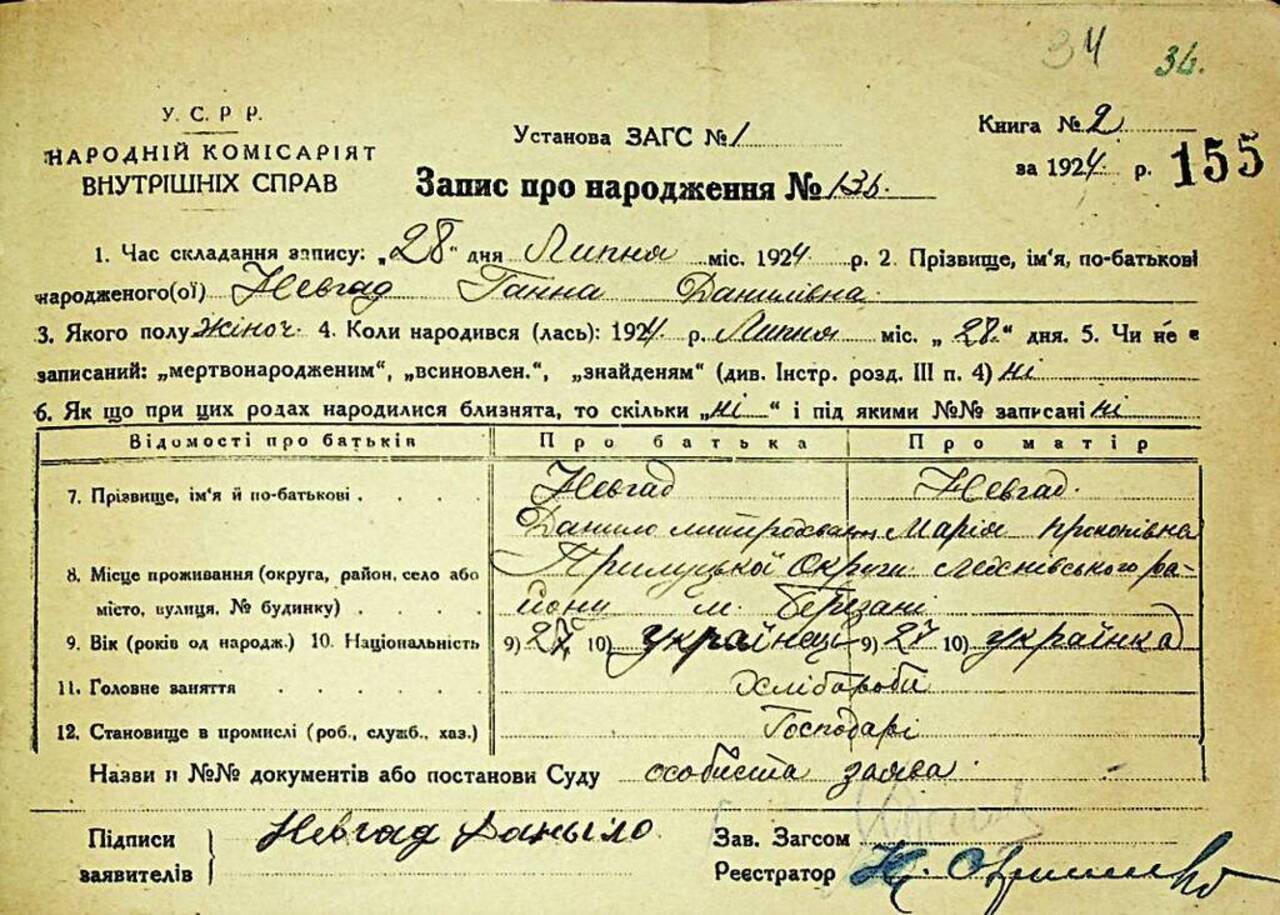 34 36.
У. С. Р Р.
НАРОДНІЙ КОМІСАРІЯТ
ВНУТРІШНІХ СПРАВ
Установа ЗАГС № 1
Книга № 2
за 1924 р. 155
Запис про народження № 136.
1. Час складання запису: „28“ дня Липня міс. 1924 р. 2. Прізвище, ім'я, по-батькові
народженого(ої) Невгад Ганна Данилівна
3. Якого полу жіноч. 4. Коли народився (лась): 1924 р. Липня міс. „28.“ дня. 5. Чи не є
записаний: „мертвонародженим“, „всиновлен.“, „знайденям“ (див. Інстр. розд. III п. 4) ні
6. Як що при цих родах народилися близнята, то скільки „ні“ і під якими №№ записані ні
Відомості про батьків Про батька Про матір
7. Прізвище, ім'я й по-батькові . . . . Невгад Невгад.
Данило Марія Прокопівна
8. Місце проживання (округа, район, село або Прилуцької Округи ра-
місто, вулиця, № будинку) . . . . йону м. Березані
9. Вік (років од народж.) 10. Національність 9) 27, 10) українець 9) 27 10) українка
11. Головне заняття . . . . . . Хлібороби
12. Становище в промислі (роб., служб., хаз.) Господарі
Назви и №№ документів або постанови Суду особиста заява.
Підписи
заявителів
Невгад Даныло
Зав. Загсом
Реєстратор